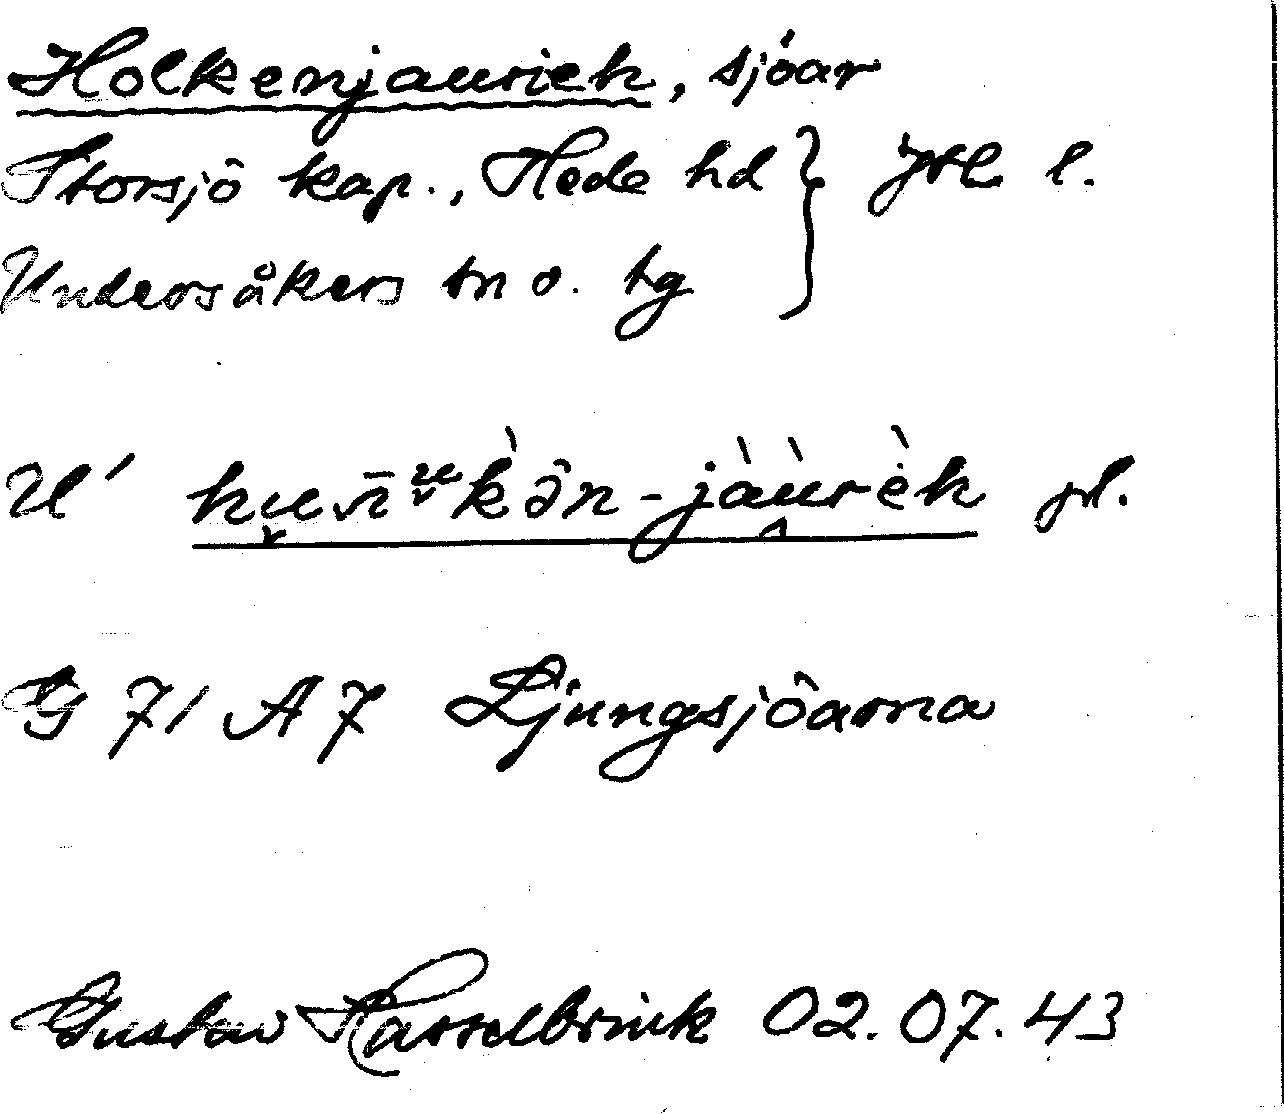 Holkenjaurieh, sjöar
Storsjö kap., Hede hd } Jtl l.
Undersåkers sn o. tg
U'  pl.
G 7/ A 7 Ljungsjöarna
Gustav Hasselbrink 02.07.43